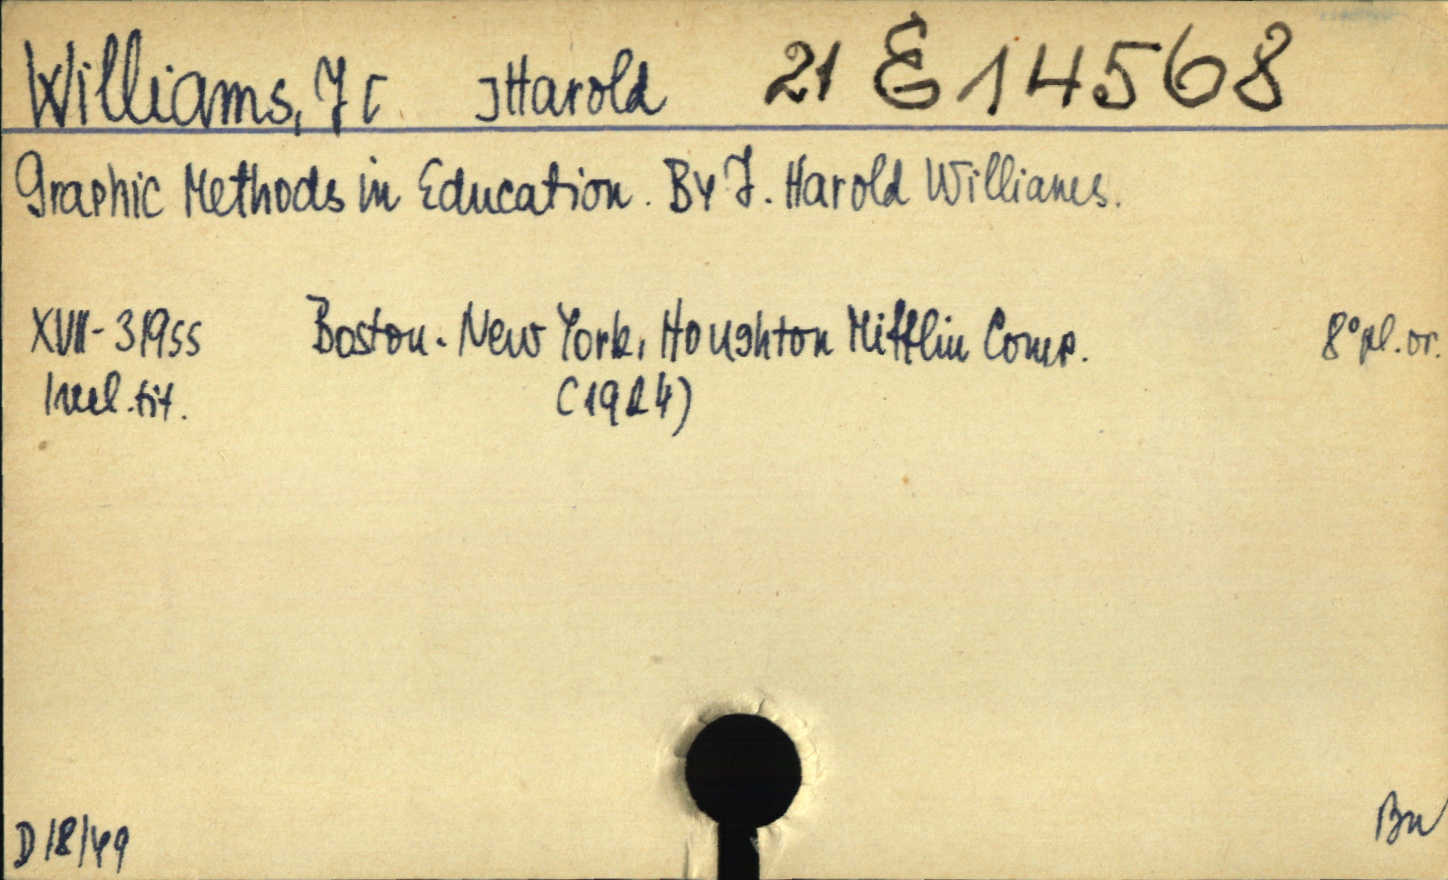 Williams, J[ ]Harold 21 E 14568
Graphic Methods in Education. By J. Harold Williams.
XVII-31955 Boston. New York, Houghton Mifflin Comp. 8° pl. or.
1 vel. tit. (1924)
D 18/49 Bn